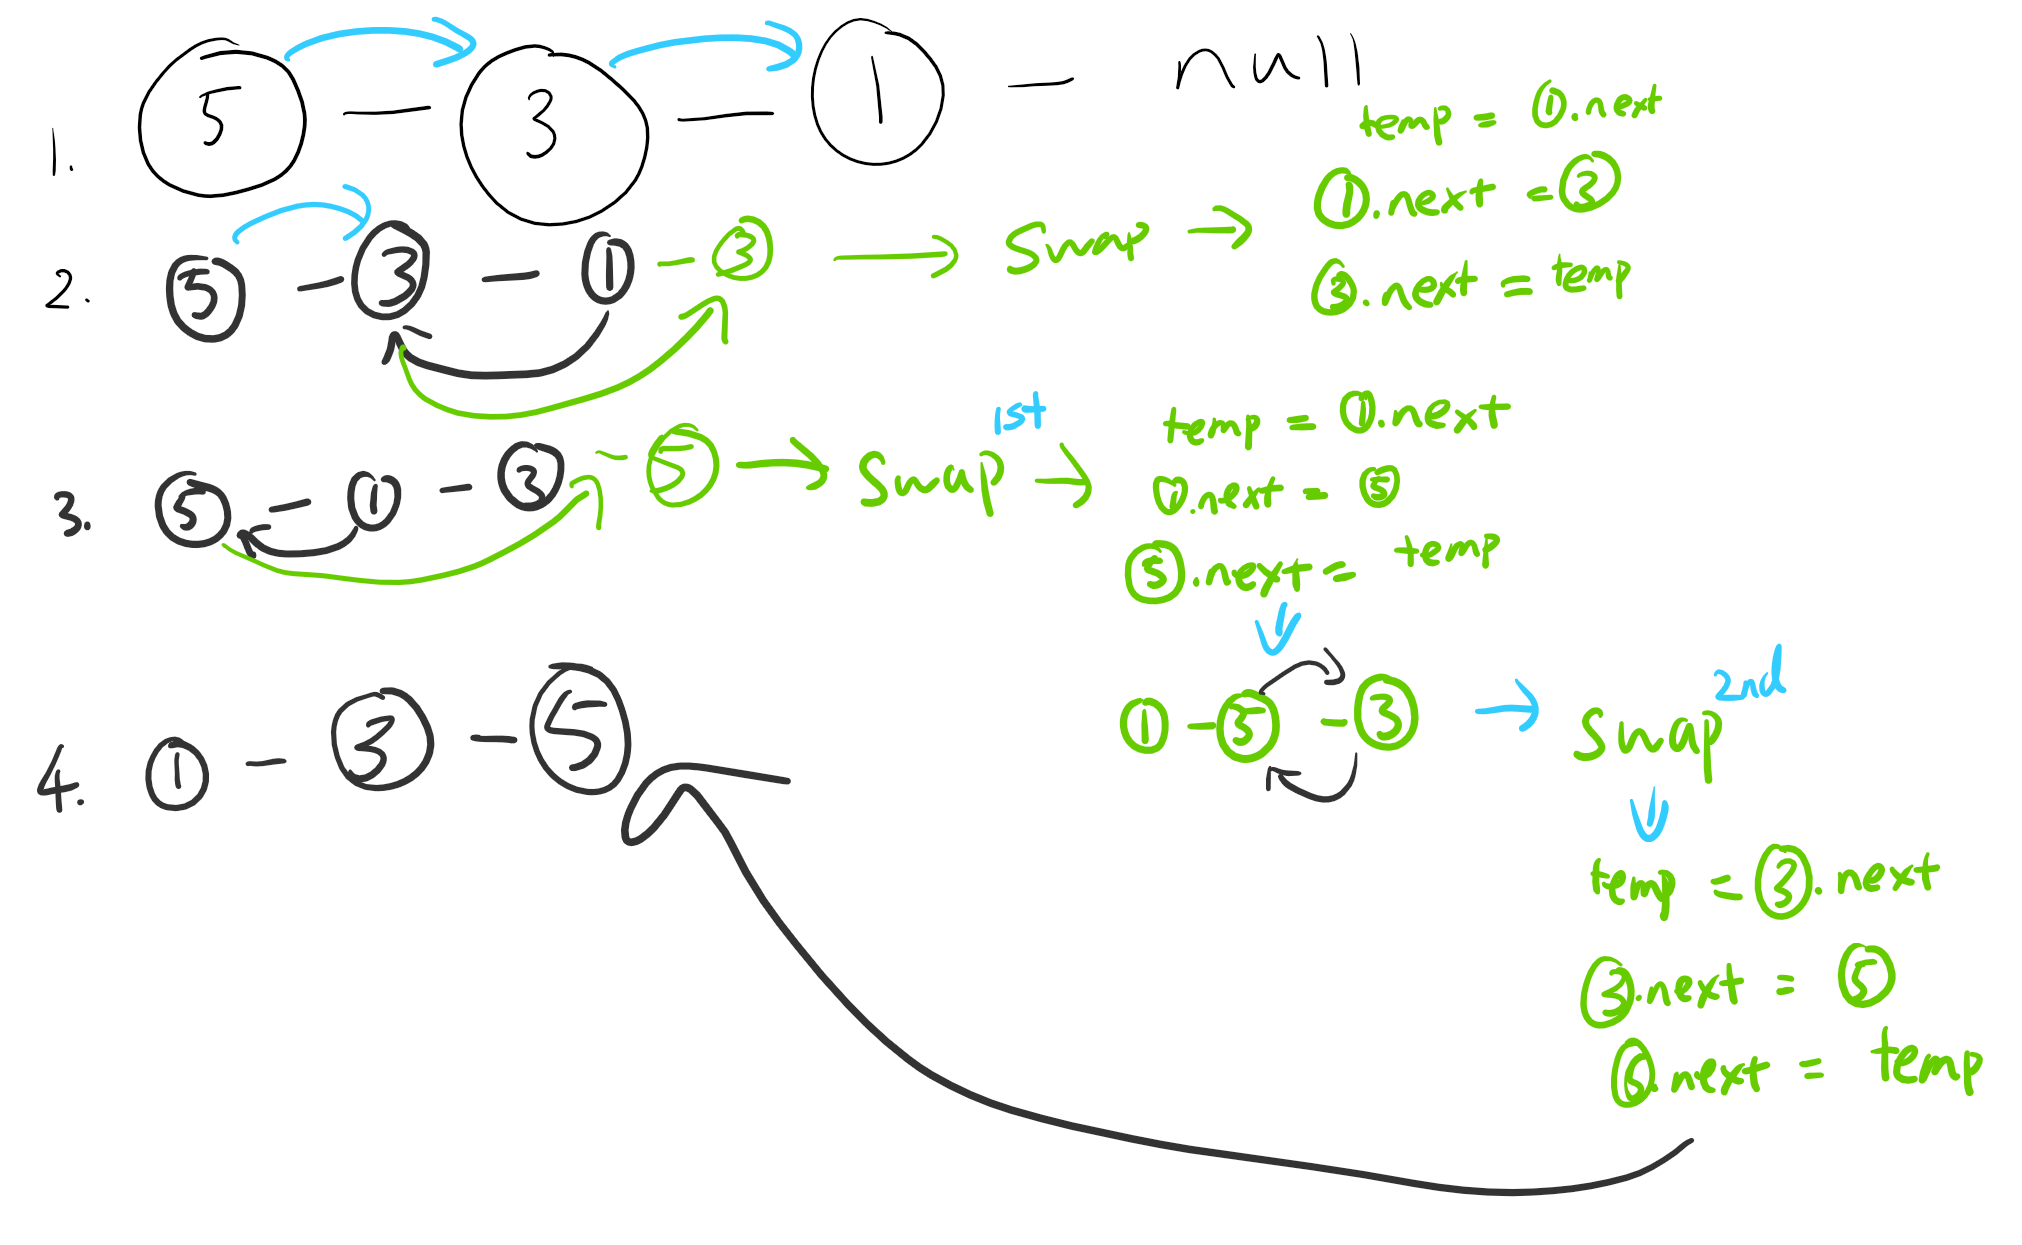 1. 5 — 3 — 1 — null
temp = 1.next
1.next = 3
3.next = temp
2. 5 - 3 - 1 - 3 → swap →
3. 5 - 1 - 3 - 5 → swap 1st →
temp = 1.next
1.next = 5
5.next = temp
1 - 5 - 3 → swap 2nd
temp = 3.next
3.next = 5
5.next = temp
4. 1 - 3 - 5